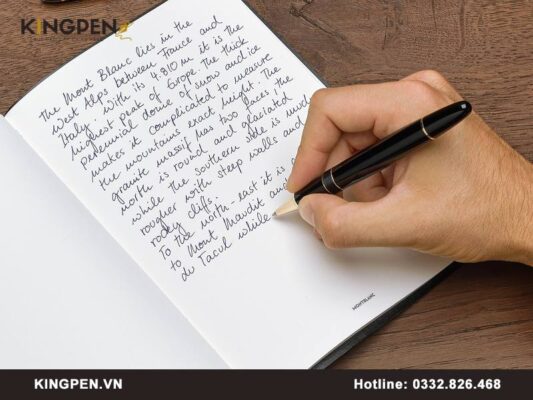 KINGPEN
The Mont Blanc lies in the
West Alps between France and
Italy. With its 4.810 m it is the
highest peak of Europe. The thick
perennial dome of snow and ice
makes it complicated to measure
the mountains exact height. The
granite massif has two faces, the
north is round and glaciated
while the southern side is much
rougher with steep walls and
rocky cliffs.
To the north-east it is
to Mont Maudit and
du Tacul while
MONTBLANC
KINGPEN.VN
Hotline: 0332.826.468